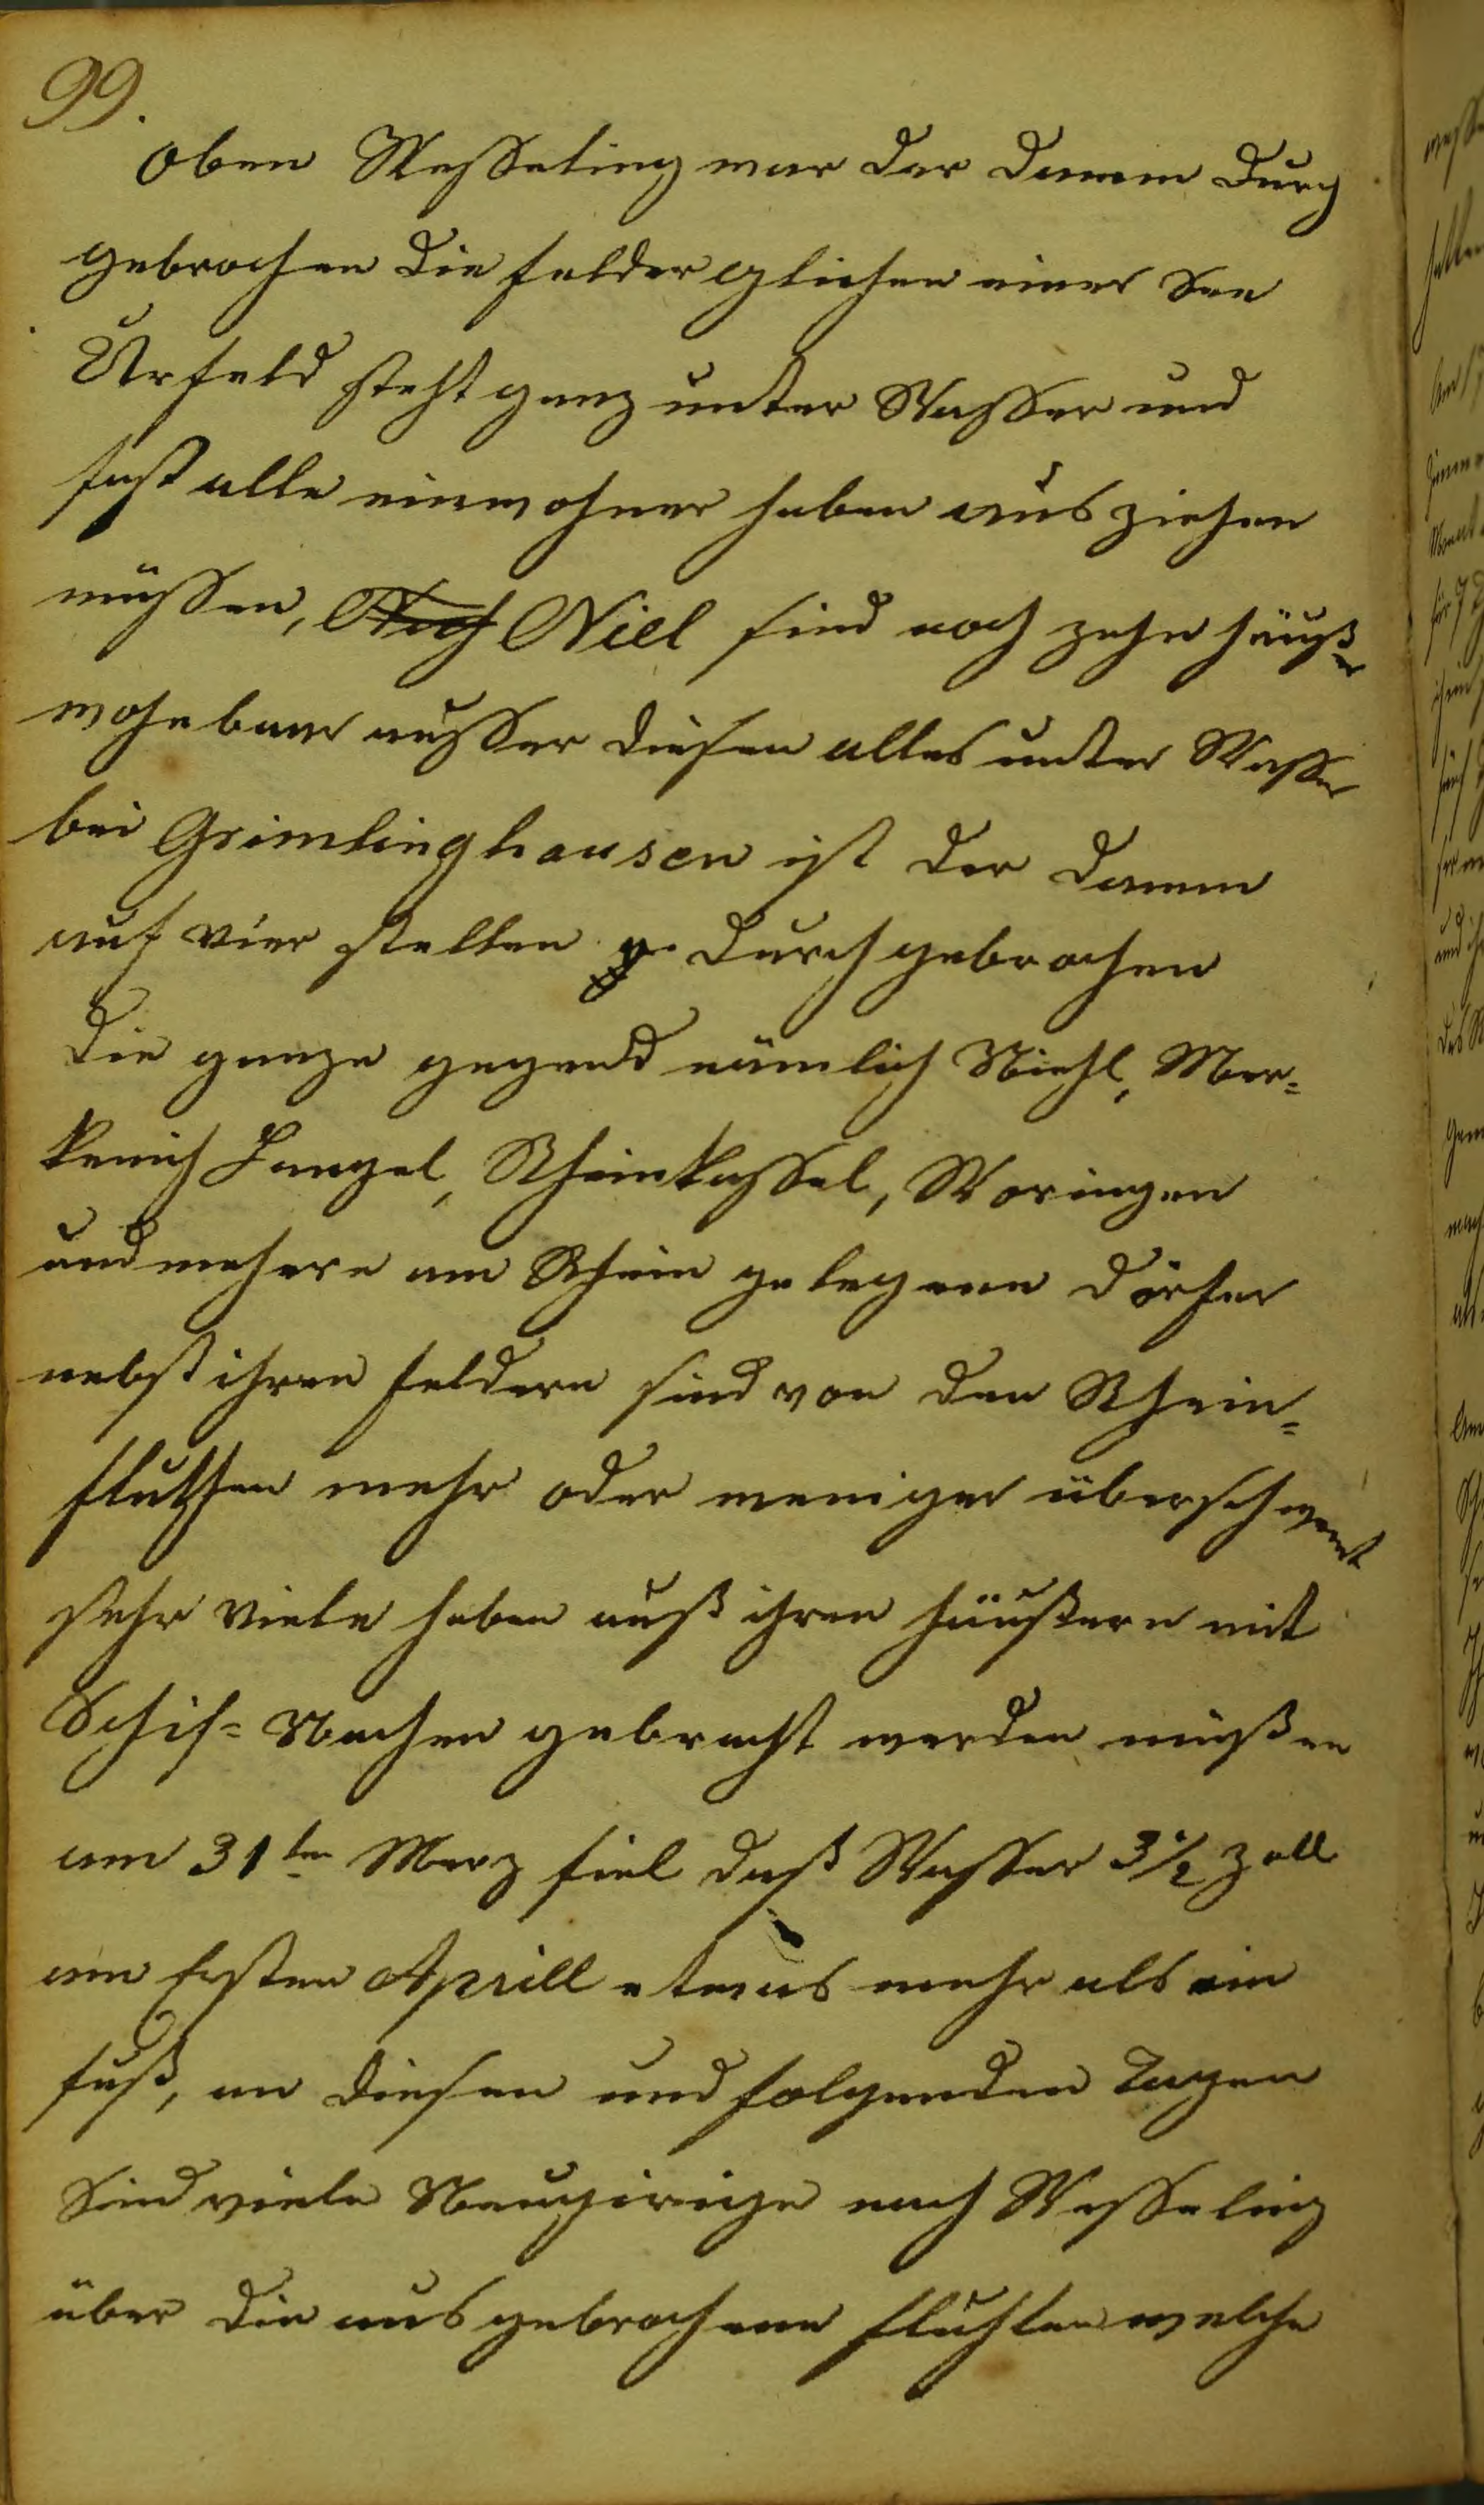 99.
oben Wesseling war der damm durch
gebrochen die felder glichen einer See
Urfeld steht ganz unter Wasser und
fast alle einwohner haben aus ziehen
müssen, Niel sind noch zehn häußer
wohnbaar ausser diesen alles unter Wasser
bei Grimlinghausen ist der damm
auf vier stellen durch gebrochen
die ganze gegend nämlich Niehl, Mer=
kenich Langel, Rheinkassel, Woringen
und mehere am Rhein gelegene dörfer
nebst ihren feldern sind von den Rhein=
fluthen mehr oder weniger überschwemt
sehr viele haben auß ihren häußern mit
Schif= Nachen gebracht werden müßen
am 31ten Merz fiel daß Wasser 3 1/2 Zoll
am Ersten Aprill etwas mehr als ein
fuß, an diesen und folgenden Tagen
Sind viele Neugirige nach Wesseling
über die aus gebrochene fluhten welche